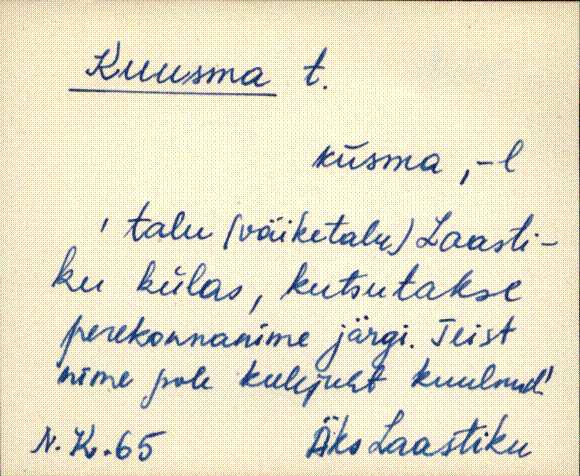 Kuusma t.
kūsma, -l
' talu (väiketalu) Laasti-
ku külas, kutsutakse
perekonnanime järgi. Teist
nime pole kuulnud'
N. K. 65 Äks Laastiku